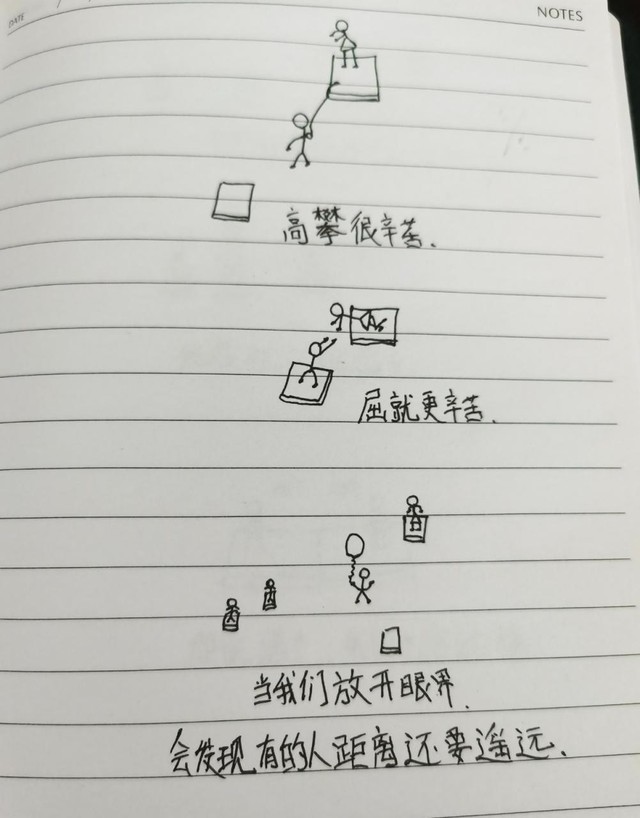 DATE
NOTES
高攀很辛苦.
屈就更辛苦.
当我们放开眼界.
会发现有的人距离还要遥远.